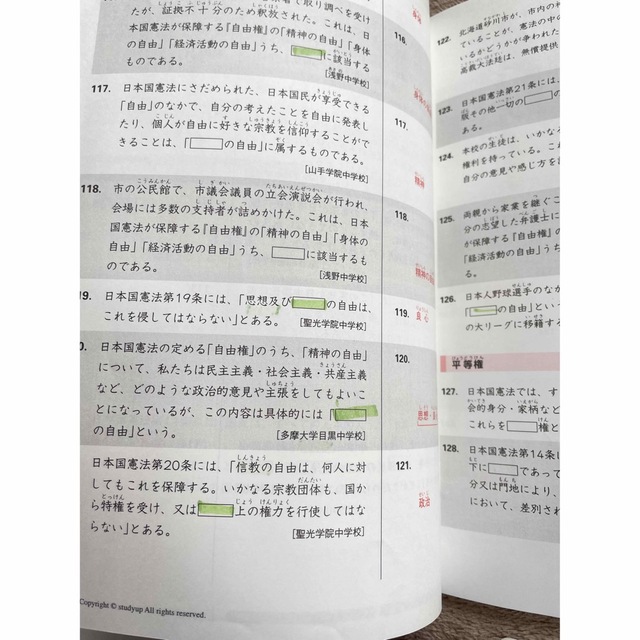 者で取り調べを受け
たが、証拠不十分のため釈放された。これは、日
本国憲法が保障する『自由権』の「精神の自由」「身体
の自由」「経済活動の自由」うち、に該当する
ものである。
[浅野中学校]
116.
117.
日本国憲法にさだめられた、日本国民が享受できる
「自由」のなかで、自分の考えたことを自由に発表し
たり、個人が自由に好きな宗教を信仰することがで
きることは、「の自由」に属するものである。
[山手学院中学校]
117.
精神
118.
市の公民館で、市議会議員の立会演説会が行われ、
会場には多数の支持者が詰めかけた。これは、日本
国憲法が保障する『自由権』の「精神の自由」「身体の
自由」「経済活動の自由」うち、に該当するも
のである。
[浅野中学校]
118.
精神の
19.
日本国憲法第19条には、「思想及びの自由は、
これを侵してはならない」とある。
[聖光学院中学校]
119.
良心
0.
日本国憲法の定める「自由権」のうち、「精神の自由」
について、私たちは民主主義・社会主義・共産主義
など、どのような政治的意見や主張をしてもよいこ
とになっているが、この内容は具体的には「
の自由」という。
[多摩大学目黒中学校]
120.
日本国憲法第20条には、「信教の自由は、何人に対
してもこれを保障する。いかなる宗教団体も、国か
ら特権を受け、又は上の権力を行使してはな
らない」とある。
[聖光学院中学校]
121.
政治
Copyright © studyup All rights reserved.
122.
北海道砂川市が、市内の神
ていることが、憲法の中の
いるかどうかが争われた
高裁大法廷は、無償提供
123.
日本国憲法第21条には、
版その他一切の
ある。
124.
本校の生徒は、いかなる
権利を持っている。これ
自分の意見や感じ方を
125.
両親から家業を継ぐこ
分の志望した弁護士に
が保障する『自由権』の
「経済活動の自由」の
126.
日本人野球選手のなか
「の自由」という
の大リーグに移籍する
平等権
127.
日本国憲法では、す
会的身分・家柄など
これらを権と
128.
日本国憲法第14条に
下にであって
分又は門地により、
において、差別され